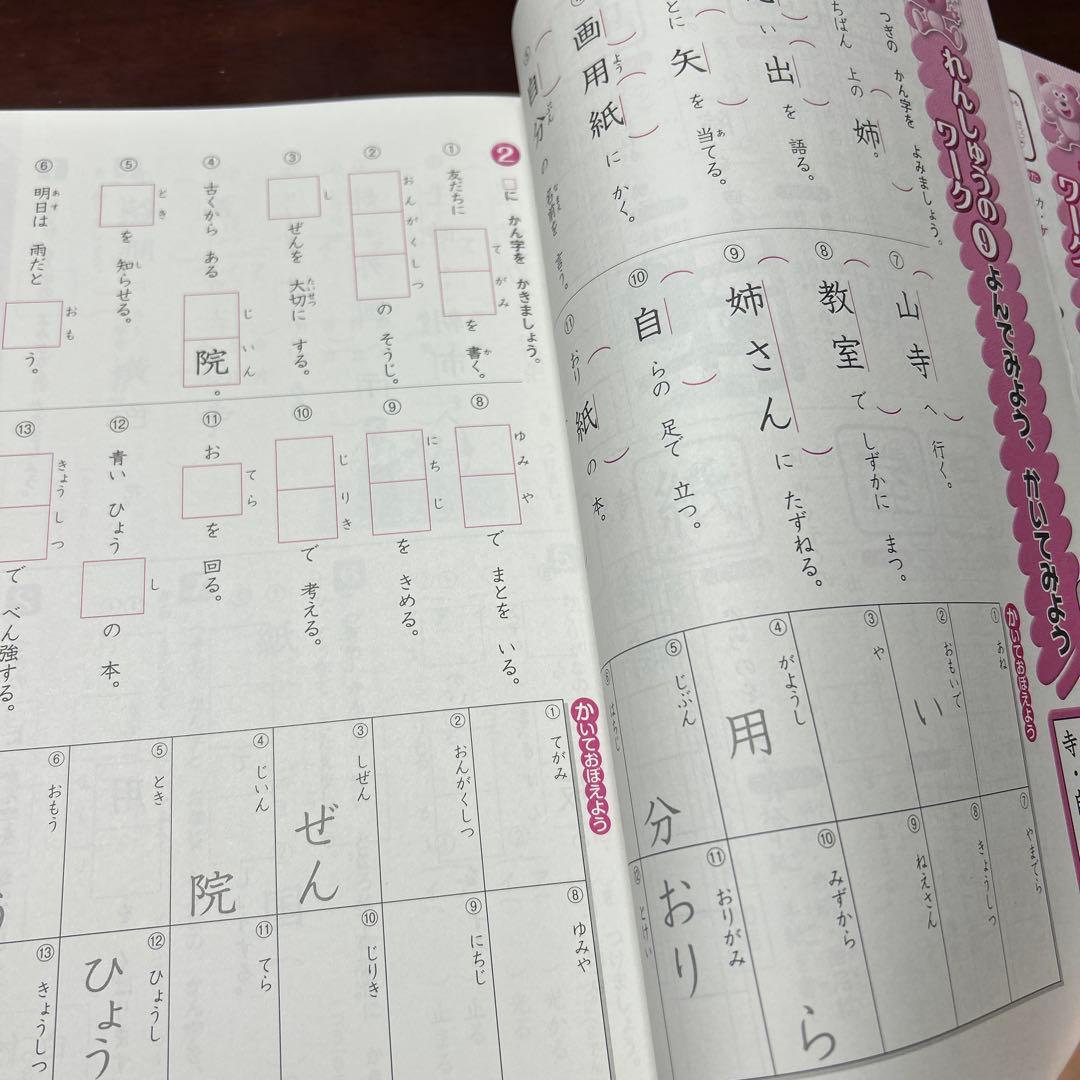 れんしゅうの
ワーク
❶
よんでみよう、かいてみよう
つぎの かん字を よみましょう。
上の 姉。
い出を 語る。
矢を 当てる。
あ
画用紙に かく。
よう
自分の
ぶん
⑦ 山寺へ 行く。
⑧ 教室で しずかに まつ。
⑨ 姉さんに たずねる。
⑩ 自らの 足で 立つ。
⑪ おり紙の 本。
かいておぼえよう
① あね
② おもいで
い
③ や
④ がようし
用
⑤ じぶん
分
⑦ やまでら
⑧ きょうしつ
⑨ ねえさん
⑩ みずから
ら
⑪ おりがみ
おり
⑫ とけい
ワーク
寺
2 □に かん字を かきましょう。
① 友だちに □□を 書く。
てがみ
か
② □□□の そうじ。
おんがくしつ
③ □ぜんを 大切に する。
し
たいせつ
④ 古くから ある □院。
じいん
⑤ □を 知らせる。
とき
し
⑥ 明日は 雨だと □う。
あす
おも
⑧ □□で まとを いる。
ゆみや
⑨ □□を きめる。
にちじ
⑩ □□で 考える。
じりき
⑪ お□を 回る。
てら
⑫ 青い ひょう□の 本。
し
⑬ □□で べん強する。
きょうしつ
かいておぼえよう
① てがみ
② おんがくしつ
③ しぜん
ぜん
④ じいん
院
⑤ とき
⑥ おもう
う
⑧ ゆみや
⑨ にちじ
⑩ じりき
⑪ てら
⑫ ひょうし
ひょう
⑬ きょうしつ